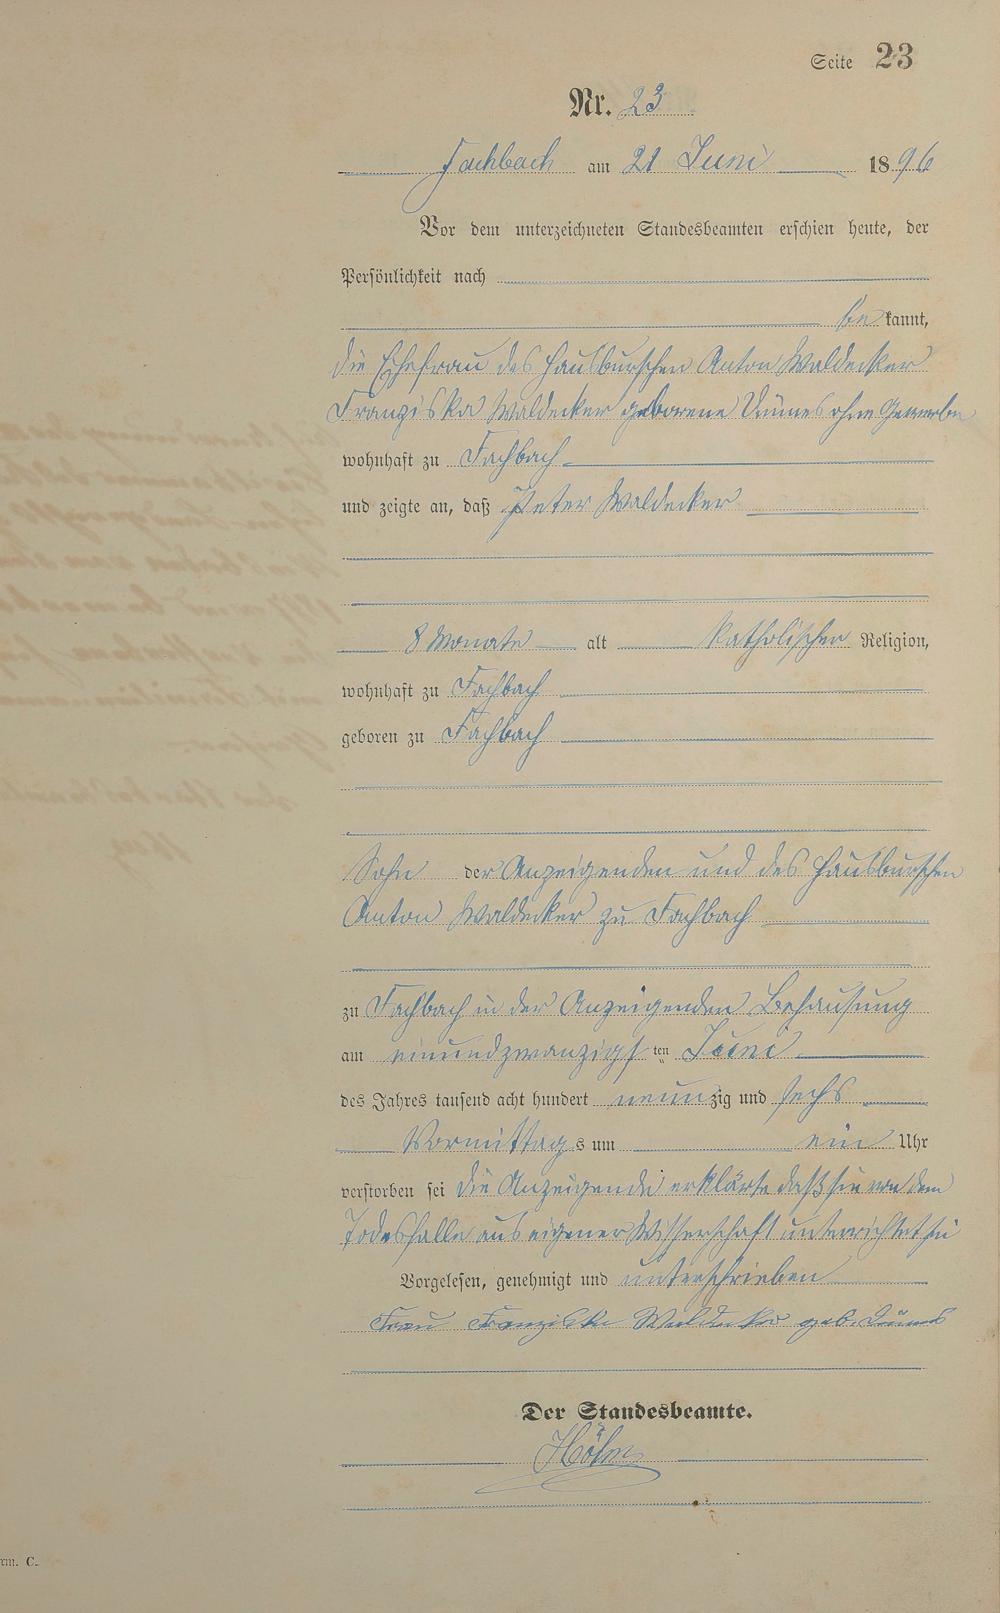 Seite 23
Nr. 23
Fachbach am 21 Juni 1896
Vor dem unterzeichneten Standesbeamten erschien heute, der
Persönlichkeit nach
be kannt,
die Ehefrau des Hausburschen Anton Waldecker
Franziska Waldecker geborene ohne Gewerbe
wohnhaft zu Fachbach
und zeigte an, daß Peter Waldecker
8 Monate alt katholischer Religion,
wohnhaft zu Fachbach
geboren zu Fachbach
Sohn der Anzeigenden und des Hausburschen
Anton Waldecker zu Fachbach
zu Fachbach in der Anzeigenden Behausung
am einundzwanzigs ten Juni
des Jahres tausend acht hundert neunzig und sechs
Vormittags um ein Uhr
verstorben sei die Anzeigende erklärte daß sie von dem
Todesfalle aus eigener Wissenschaft unterrichtet sei
Vorgelesen, genehmigt und unterschrieben
Frau Franziska Waldecker geb.
Der Standesbeamte.
rm. C.